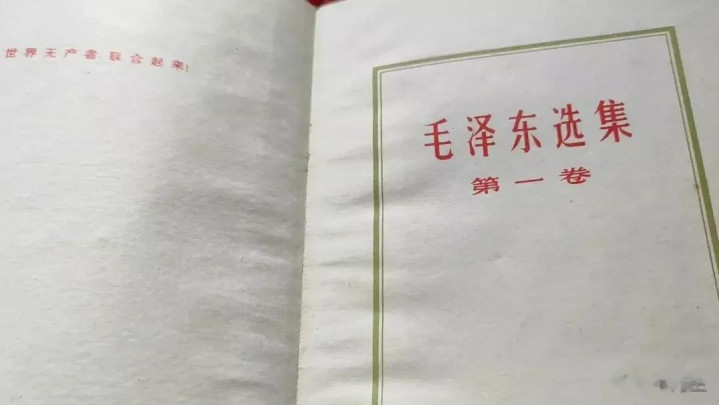 世界无产者，联合起来！
毛泽东选集
第一卷